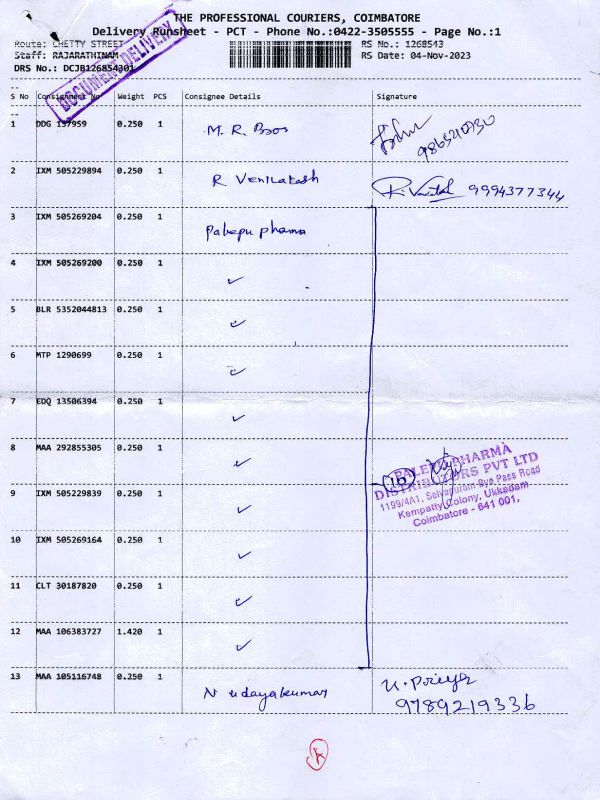 THE PROFESSIONAL COURIERS, COIMBATORE
Delivery Runsheet - PCT - Phone No.:0422-3505555 - Page No.:1
Route: CHETTY STREET
RS No.: 1268543
Staff: RAJARATHINAM
RS Date: 04-Nov-2023
DRS No.: DCJB126854301
DOCUMENT DELIVERY
S No Consignment No Weight PCS Consignee Details Signature
1 DDG 157959 0.250 1 M. R. Bros
2 IXM 505229894 0.250 1 R Venilakash 9994377344
3 IXM 505269204 0.250 1 Palepu pharma
4 IXM 505269200 0.250 1 ✓
5 BLR 5352044813 0.250 1 ✓
6 MTP 1290699 0.250 1 ✓
7 EDQ 13506394 0.250 1 ✓
8 MAA 292855305 0.250 1 ✓
9 IXM 505229839 0.250 1 ✓
10 IXM 505269164 0.250 1 ✓
11 CLT 30187820 0.250 1 ✓
12 MAA 106383727 1.420 1 ✓
(10)
PALEPU PHARMA
DISTRIBUTORS PVT LTD
1199/4A1, Selvapuram Bye Pass Road
Kempatty Colony, Ukkadam
Coimbatore - 641 001.
13 MAA 105116748 0.250 1 N udayakumar U. Priya
9789219336